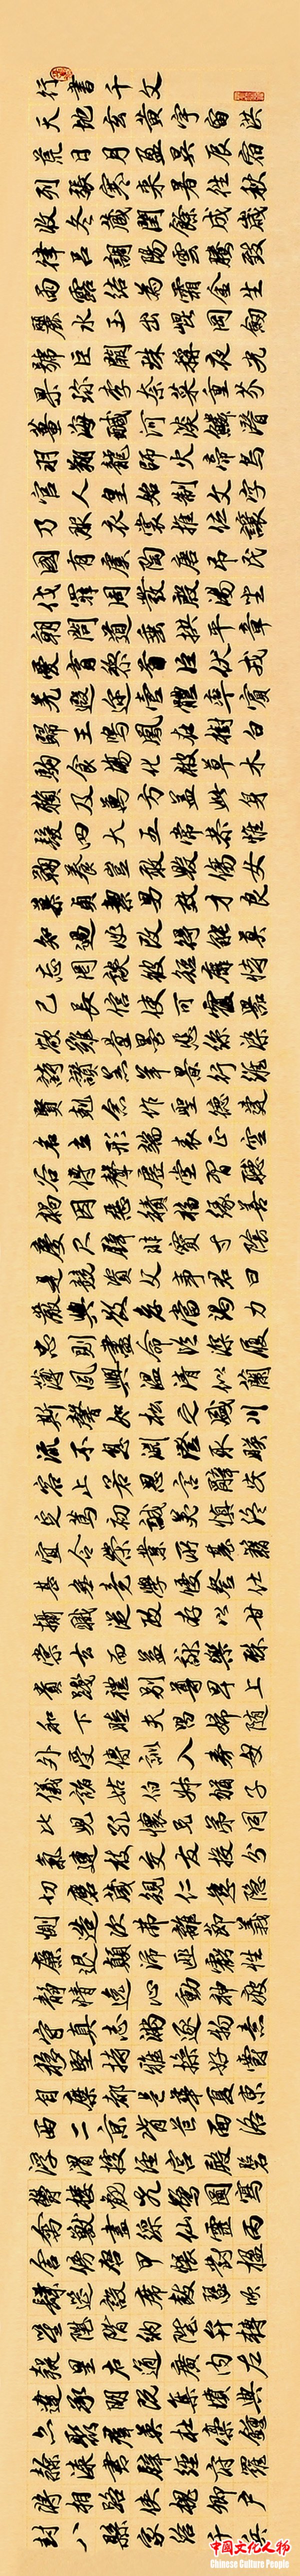 行書千文
天地玄黃宇宙洪
荒日月盈昃辰宿
列張寒來暑往秋
收冬藏閏餘成歲
律呂調陽雲騰致
雨露結為霜金生
麗水玉出崑岡劍
號巨闕珠稱夜光
果珍李柰菜重芥
薑海鹹河淡鱗潛
羽翔龍師火帝鳥
官人皇始制文字
乃服衣裳推位讓
國有虞陶唐弔民
伐罪周發殷湯坐
朝問道垂拱平章
愛育黎首臣伏戎
羌遐邇壹體率賓
歸王鳴鳳在樹白
駒食場化被草木
賴及萬方蓋此身
髮四大五常恭惟
鞠養豈敢毀傷女
慕貞絜男效才良
知過必改得能莫
忘罔談彼短靡恃
己長信使可覆器
欲難量墨悲絲染
詩讚羔羊景行維
賢剋念作聖德建
名立形端表正空
谷傳聲虛堂習聽
禍因惡積福緣善
慶尺璧非寶寸陰
是競資父事君曰
嚴與敬孝當竭力
忠則盡命臨深履
薄夙興溫清似蘭
斯馨如松之盛川
流不息淵澄取映
容止若思言辭安
定篤初誠美慎終
宜令榮業所基籍
甚無竟學優登仕
攝職從政存以甘
棠去而益詠樂殊
貴賤禮別尊卑上
和下睦夫唱婦隨
外受傅訓入奉母
儀諸姑伯叔猶子
比兒孔懷兄弟同
氣連枝交友投分
切磨箴規仁慈隱
惻造次弗離節義
廉退顛沛匪虧性
靜情逸心動神疲
守真志滿逐物意
移堅持雅操好爵
自縻都邑華夏東
西二京背芒面洛
浮渭據涇宮殿盤
鬱樓觀飛驚圖寫
禽獸畫綵仙靈丙
舍傍啓甲帳對楹
肆筵設席鼓瑟吹
笙陞階納陛弁轉
疑星右通廣內左
達承明既集墳典
亦聚群英杜稾鍾
隸漆書壁經府羅
將相路俠槐卿戶
封八縣家給千兵
中國文化人物
Chinese Culture People